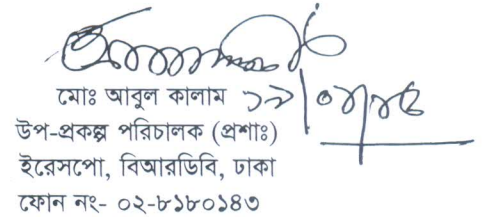 মোঃ আবুল কালাম
উপ-প্রকল্প পরিচালক (প্রশাঃ)
ইরেসপো, বিআরডিবি, ঢাকা
ফোন নং- ০২-৮১৮০১৪৩